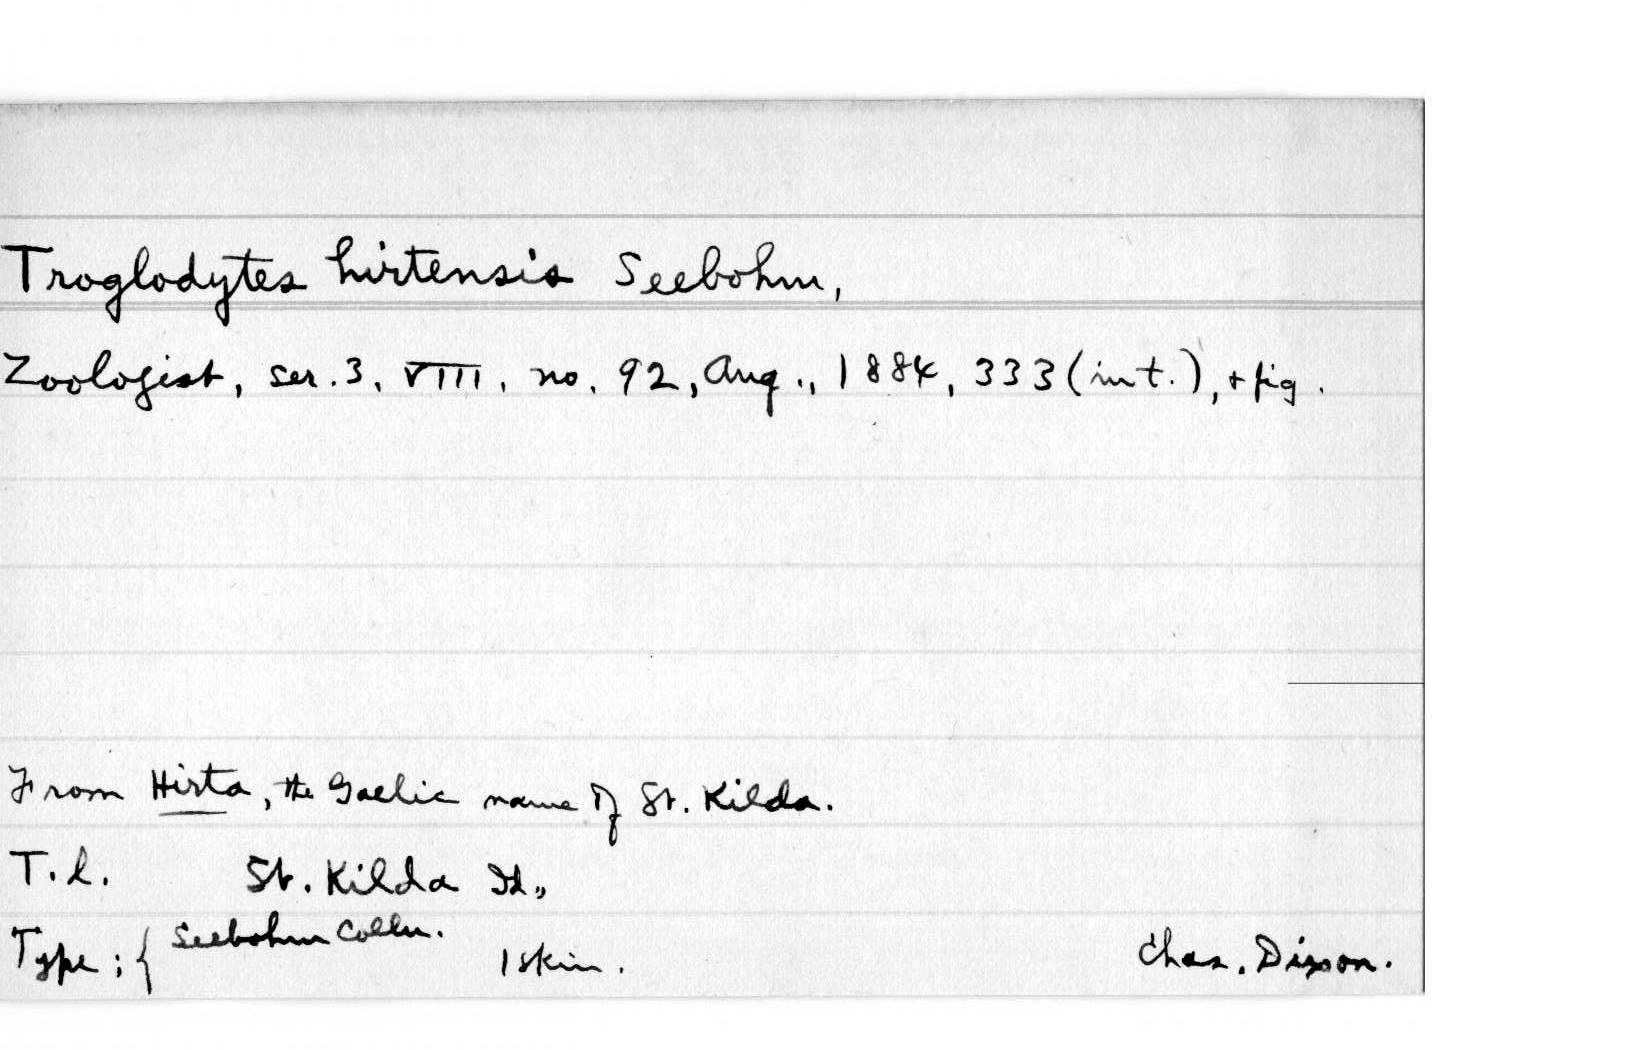 Troglodytes hirtensis Seebohm,
Zoologist, ser. 3, VIII, no. 92, Aug., 1884, 333 (int.), + fig.
From Hirta, the Gaelic name of St. Kilda.
T.l. St. Kilda Id.,
Type: { Seebohm Colln. 1 skin. Chas. Dixon.